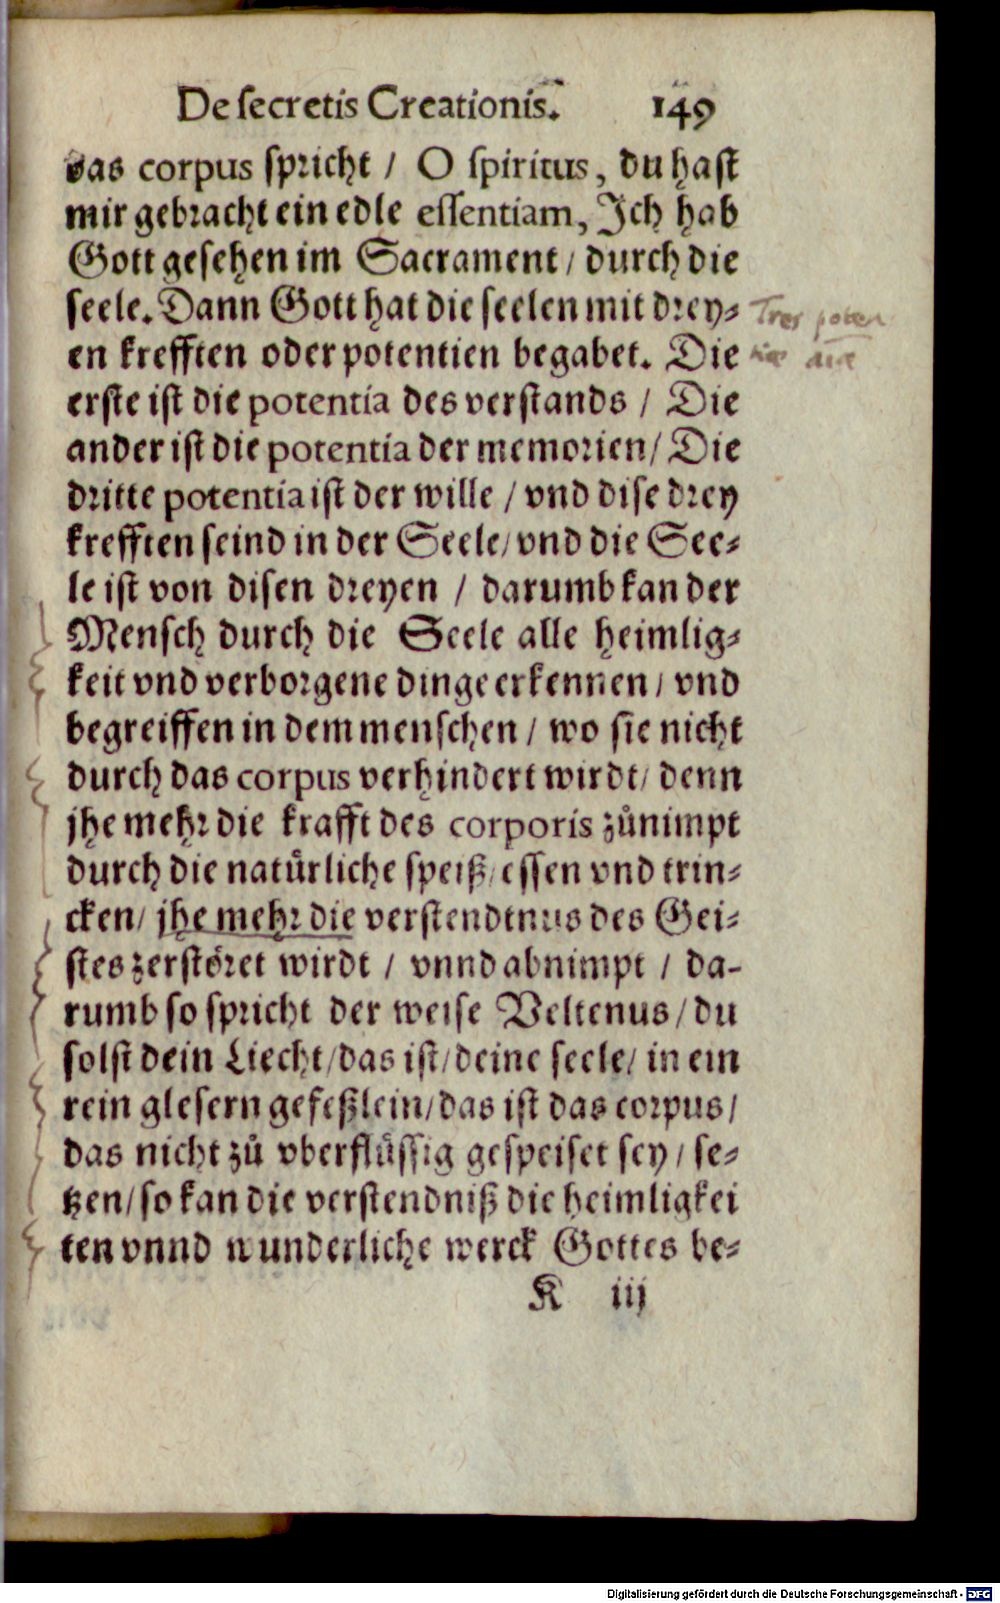 De secretis Creationis. 149
das corpus spricht / O spiritus, du hast
mir gebracht ein edle essentiam, Jch hab
Gott gesehen im Sacrament / durch die
seele. Dann Gott hat die seelen mit drey⸗
en krefften oder potentien begabet. Die
Tres poten
erste ist die potentia des verstands / Die
ander ist die potentia der memorien / Die
dritte potentia ist der wille / vnd dise drey
krefften seind in der Seele / vnd die See⸗
le ist von disen dreyen / darumb kan der
Mensch durch die Seele alle heimlig⸗
keit vnd verborgene dinge erkennen / vnd
begreiffen in dem menschen / wo sie nicht
durch das corpus verhindert wirdt / denn
jhe mehr die krafft des corporis zůnimpt
durch die natürliche speiß / essen vnd trin⸗
cken / jhe mehr die verstendtnus des Gei⸗
stes zerstöret wirdt / vnnd abnimpt / da-
rumb so spricht der weise Veltenus / du
solst dein Liecht / das ist / deine seele / in ein
rein glesern gefeßlein / das ist das corpus /
das nicht zů vberflüssig gespeiset sey / se⸗
tzen / so kan die verstendniß die heimligkei
ten vnnd wunderliche werck Gottes be⸗
K iij
Digitalisierung gefördert durch die Deutsche Forschungsgemeinschaft - DFG